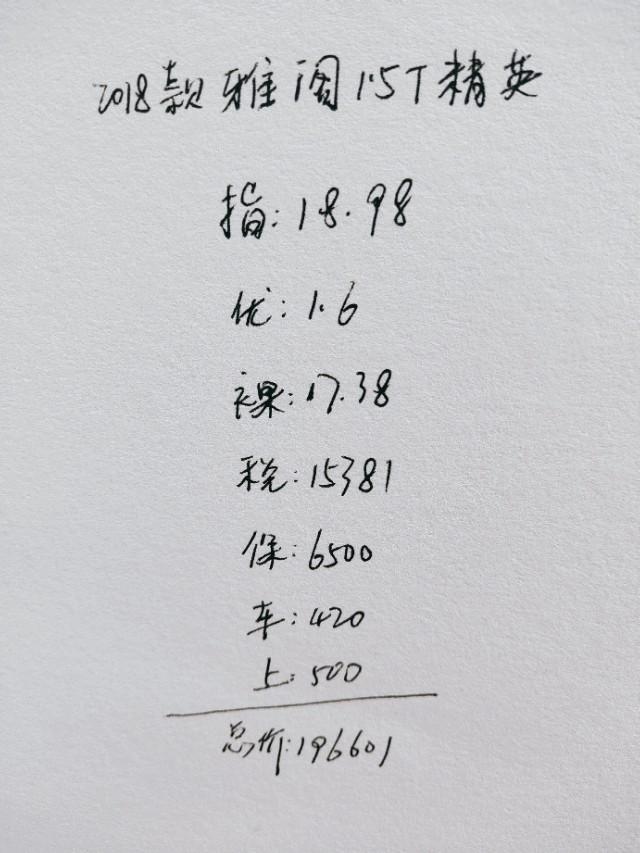 2018款雅阁1.5T精英
指:18.98
优:1.6
裸:17.38
税:15381
保:6500
车:420
上:500
总价:196601